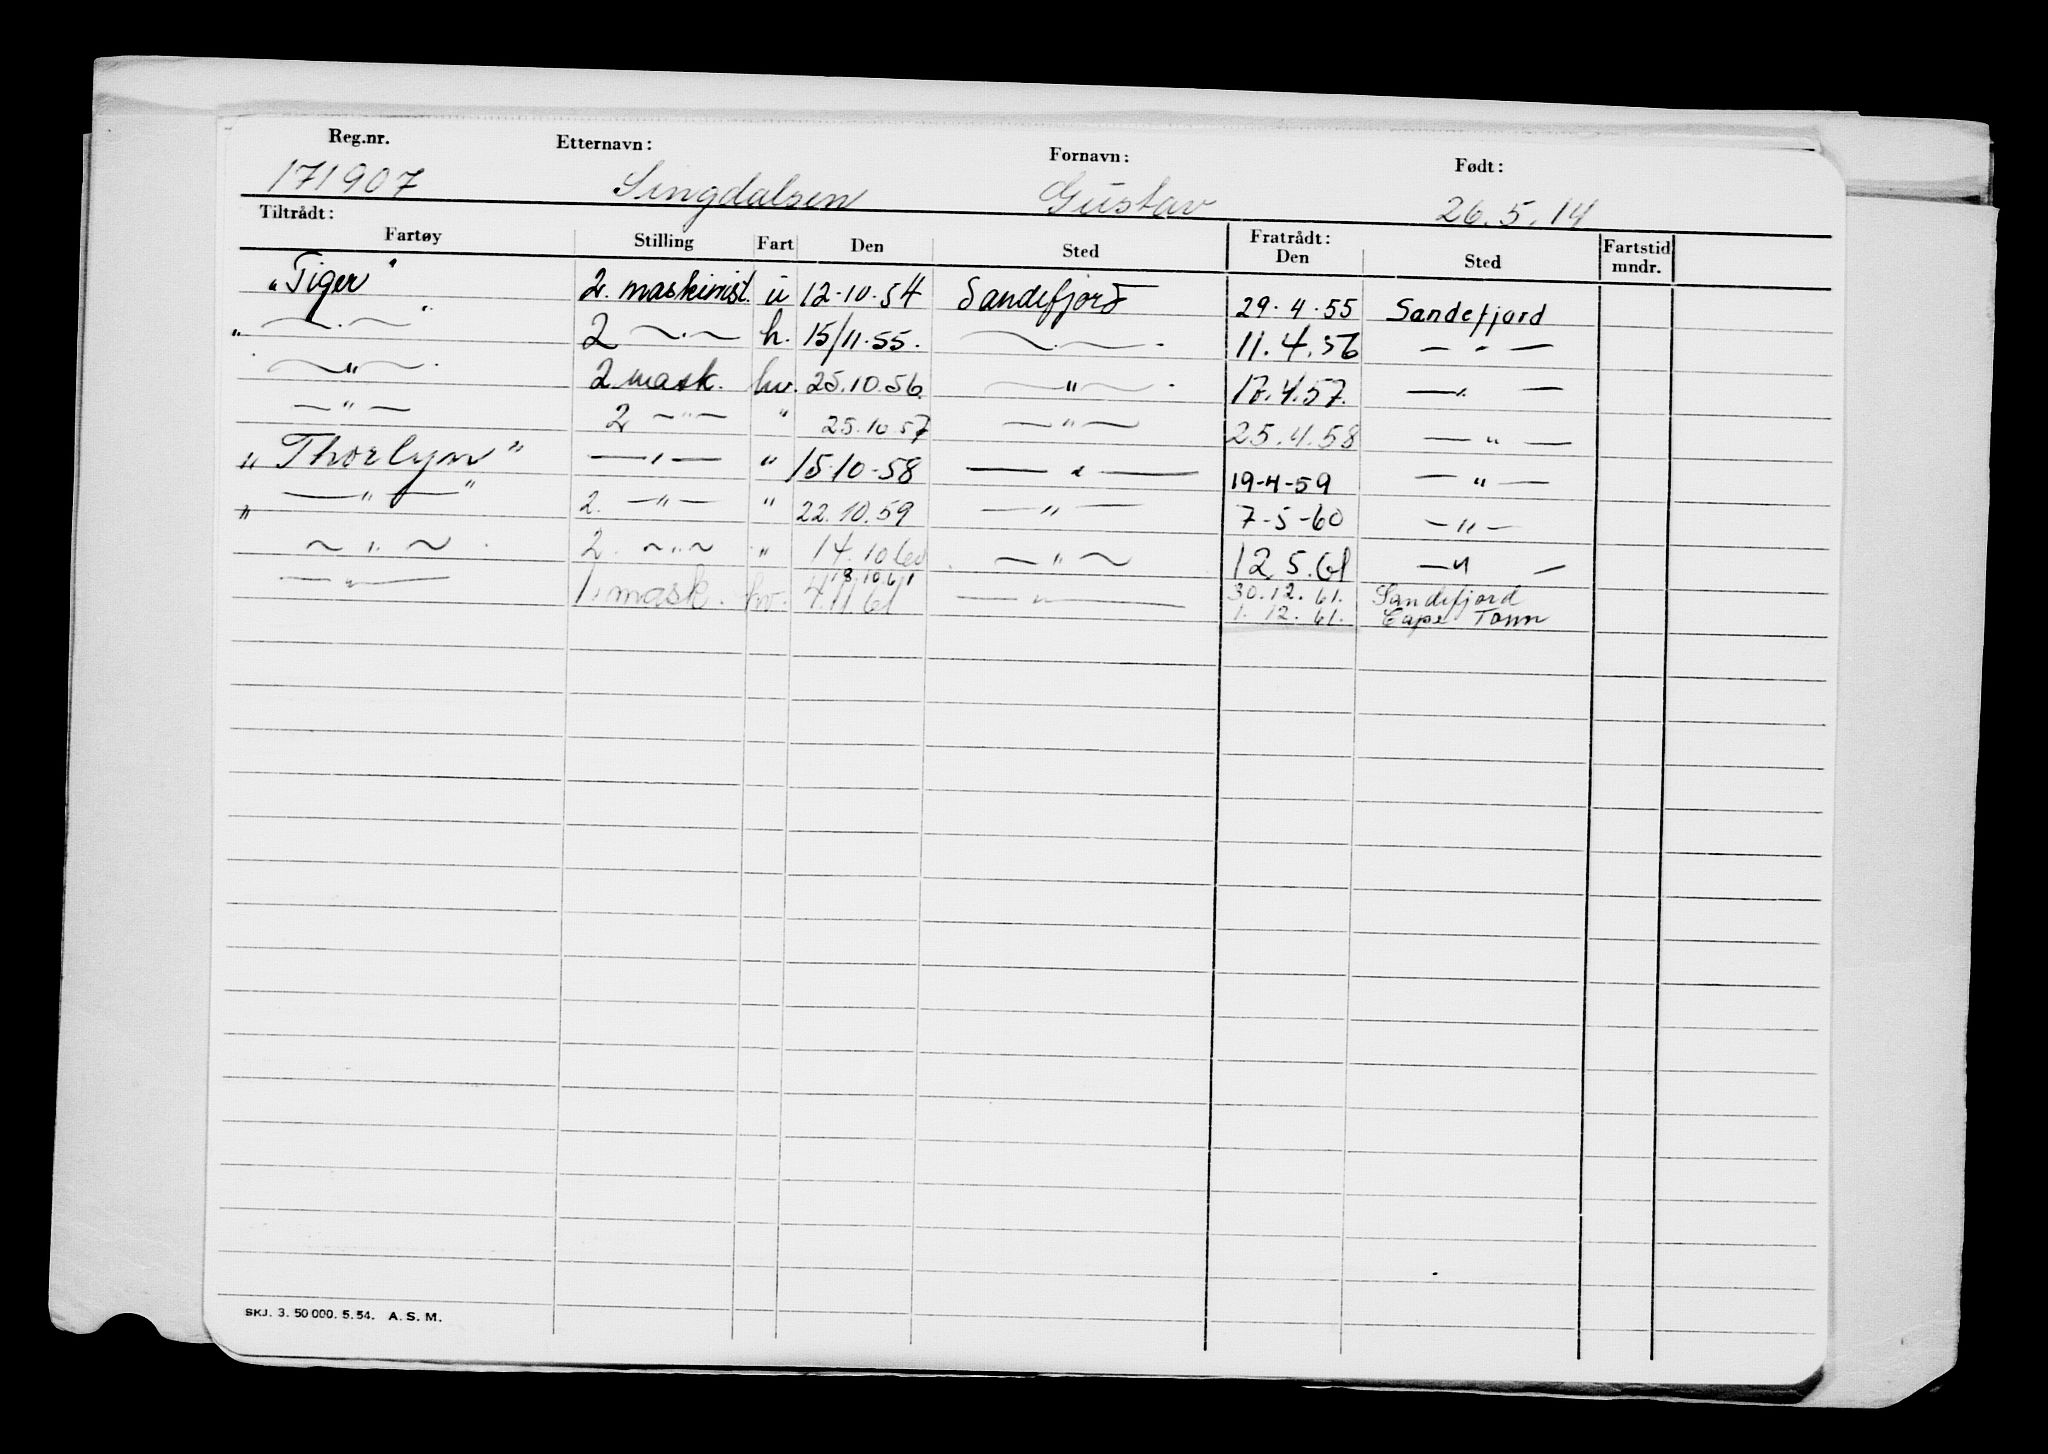 Reg.nr. Etternavn: Fornavn: Født:
171907 Singdalsen Gustav 26.5.14
Tiltrådt: Fratrådt:
Fartøy Stilling Fart Den Sted Den Sted Fartstid mndr.
"Tiger" 2. maskinist. u 12-10-54 Sandefjord 29-4-55 Sandefjord
" —·— " 2 —·— h. 15/11-55. —·— 11.4.56 — " —
— " — 2 mask. hv. 25.10.56. — " — 17.4.57. — " —
— " — 2 — " — " 25.10 57 — " — 25.4.58 — " —
"Thorlyn" — " — " 15-10-58 — " — 19-4-59 — " —
" — " — " 2. — " — " 22.10.59 — " — 7-5-60 — " —
— " — 2. — " — " 14.10 60 — " — 12.5.61 — " —
— " — 1. mask. hv. 18.10.61 — " — 30.12.61. Sandefjord
4.11 61 1.12.61. Cape Town
SKJ. 3. 50 000. 5. 54. A. S. M.